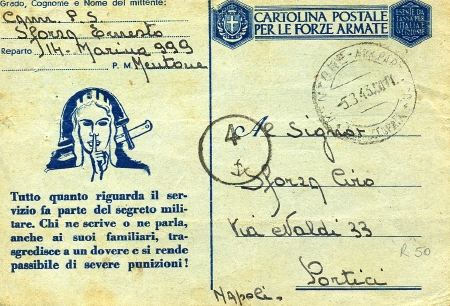 Grado, Cognome e Nome del mittente:
Cann. P. S.
Sforza Ernesto
Reparto 114 - Marina 999
P. M. Mentone
CARTOLINA POSTALE
PER LE FORZE ARMATE
5.3.43
4
Al Signor
Sforza Ciro
Via Naldi 33
Portici
Napoli -
R 50
Tutto quanto riguarda il ser-
vizio fa parte del segreto mili-
tare. Chi ne scrive o ne parla,
anche ai suoi familiari, tra-
sgredisce a un dovere e si rende
passibile di severe punizioni!